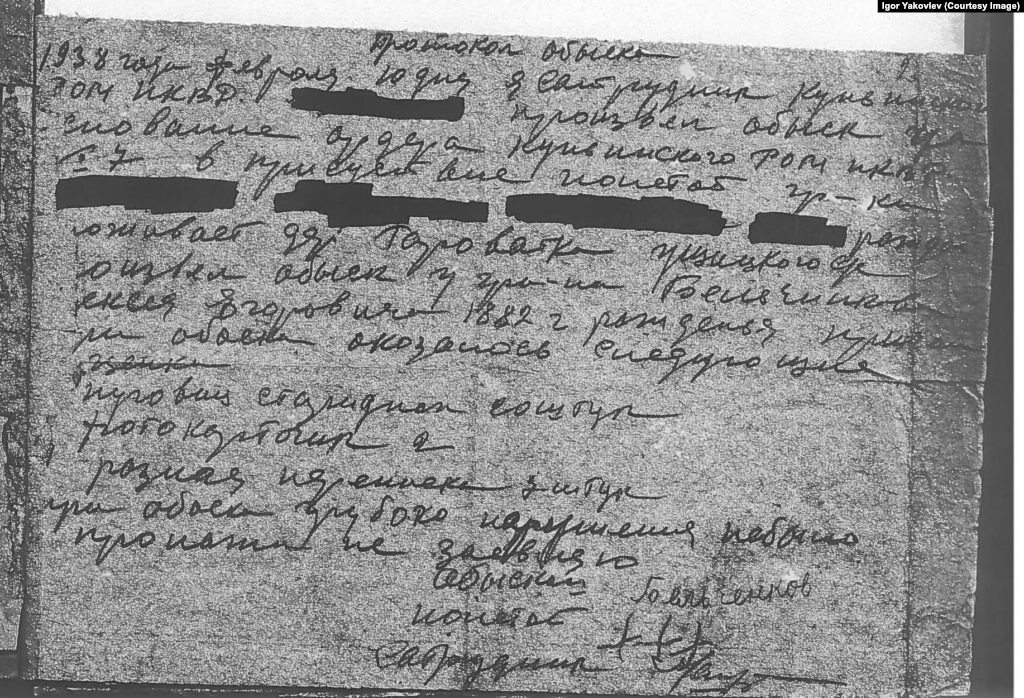 Igor Yakovlev (Courtesy Image)
Протокол обыска
1938 года февраля 10 дня я сатрудник Куньинского
РОМ НКВД произвел обыск
основание ордера Куньинского РОМ НКВД
№ 7 в присуствие понетой гр-ка
оживает дер Гороватка ущицкого
оизвел обыск у гр-на Бельченкова
ексея Егоровича 1882 г рожденья
ри обыска оказалось следующие
пуговиц
фотокарточки 2
розная переписка 3 штук
при обыска грубого нарушения небыло
пропажи не заевляю
Обыскив Бельченков
понетой +++
Сатрудник